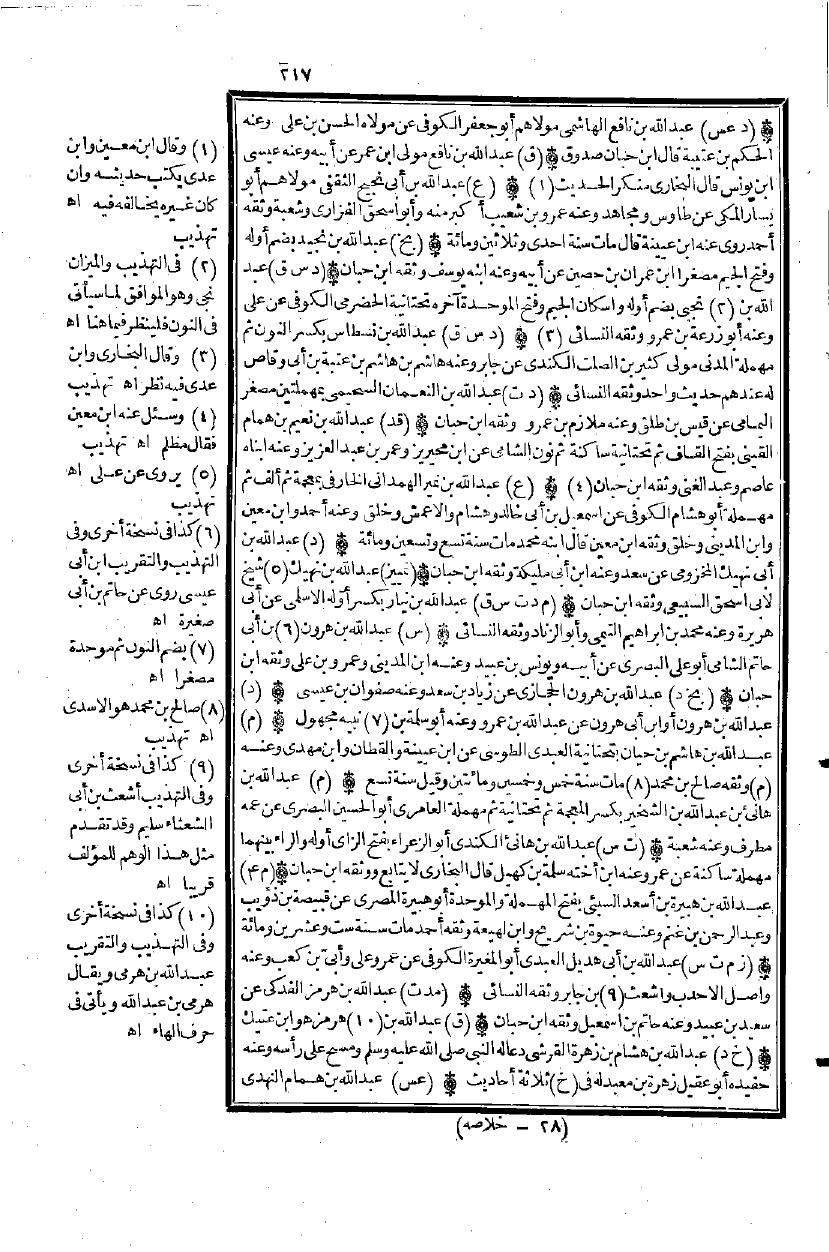 ٢١٧
۞ (د عس) عبد الله بن نافع الهاشمى مولاهم أبو جعفر الكوفى عن مولاه الحسن بن على وعنه
الحكم بن عتيبة قال ابن حبان صدوق ۞ (ق) عبد الله بن نافع مولى ابن عمر عن أبيه وعنه عيسى
ابن يونس قال البخارى منكر الحديث (١) ۞ (ع) عبد الله بن أبى نجيح الثقفى مولاهم أبو
يسار المكى عن طاوس ومجاهد وعنه عمرو بن شعيب أكبر منه وأبو اسحق الفزارى وشعبة وثقه
أحمد روى عنه ابن عيينة قال مات سنة احدى وثلاثين ومائة ۞ (بخ) عبد الله بن نجيد بضم أوله
وفتح الجيم مصغرا ابن عمران بن حصين عن أبيه وعنه ابنه يوسف وثقه ابن حبان ۞ (د س ق) عبد
الله بن (٢) نجى بضم أوله واسكان الجيم وفتح الموحدة آخره تحتانية الحضرمى الكوفى عن على
وعنه أبو زرعة بن عمرو وثقه النسائى (٣) ۞ (د س ق) عبد الله بن نسطاس بكسر النون ثم
مهملة المدنى مولى كثير بن الصلت الكندى عن جابر وعنه هاشم بن هاشم بن عتبة بن أبى وقاص
له عندهم حديث واحد وثقه النسائى ۞ (د ت) عبد الله بن النعمان السحيمى بمهملتين مصغر
اليمامى عن قيس بن طلق وعنه ملازم بن عمرو وثقه ابن حبان ۞ (قد) عبد الله بن نعيم بن همام
القينى بفتح القاف ثم تحتانية ساكنة ثم نون الشامى عن ابن محيريز وعمر بن عبد العزيز وعنه ابناه
عاصم وعبد الغنى وثقه ابن حبان (٤) ۞ (ع) عبد الله بن نمير الهمدانى الخارفى بمعجمة ثم ألف ثم
مهملة أبو هشام الكوفى عن اسمعيل بن أبى خالد وهشام والاعمش وخلق وعنه أحمد وابن معين
وابن المدينى وخلق وثقه ابن معين قال ابنه محمد مات سنة تسع وتسعين ومائة ۞ (د) عبد الله بن
أبى نهيك المخزومى عن سعد وعنه ابن أبى مليكة وثقه ابن حبان ۞ (تمييز) عبد الله بن نهيك (٥) شيخ
لأبى اسحق السبيعى وثقه ابن حبان ۞ (م د ت س ق) عبد الله بن نيار بكسر أوله الاسلمى عن أبى
هريرة وعنه محمد بن ابراهيم التيمى وأبو الزناد وثقه النسائى ۞ (س) عبد الله بن هرون (٦) بن أبى
حاتم الشامى أبو على البصرى عن أبيه ويونس بن عبيد وعنه ابن المدينى وعمرو بن على وثقه ابن
حبان ۞ (بخ د) عبد الله بن هرون الحجازى عن زياد بن سعد وعنه صفوان بن عيسى ۞ (د)
عبد الله بن هرون أو ابن أبى هرون عن عبد الله بن عمرو وعنه أبو سلمة بن (٧) نبيه مجهول ۞ (م)
عبد الله بن هاشم بن حيان بتحتانية العبدى الطوسى عن ابن عيينة والقطان وابن مهدى وعنه
(م) وثقه صالح بن محمد (٨) مات سنة خمس وخمسين ومائتين وقيل سنة تسع ۞ (م) عبد الله بن
هانئ بن عبد الله بن الشخير بكسر المعجمة ثم تحتانية ثم مهملة العامرى أبو الحسين البصرى عن عمه
مطرف وعنه شعبة ۞ (ت س) عبد الله بن هانئ الكندى أبو الزعراء بفتح الزاى أوله والراء بينهما
مهملة ساكنة عن عمر وعنه ابن أخته سلمة بن كهيل قال البخارى لا يتابع ووثقه ابن حبان ۞ (م ٤)
عبد الله بن هبيرة بن أسعد السبئى بفتح المهملة والموحدة أبو هبيرة المصرى عن قبيصة بن ذؤيب
وعبد الرحمن بن غنم وعنه حيوة بن شريح وابن لهيعة وثقه أحمد مات سنة ست وعشرين ومائة
۞ (ز م ت س) عبد الله بن أبى هديل العبدى أبو المغيرة الكوفى عن عمر وعلى وأبى بن كعب وعنه
واصل الاحدب واشعث (٩) بن جابر وثقه النسائى ۞ (مد ت) عبد الله بن هرمز الفدكى عن
سعيد بن عبيد وعنه حاتم بن اسمعيل وثقه ابن حبان ۞ (ق) عبد الله بن (١٠) هرمز هو ابن عتيك
۞ (خ د) عبد الله بن هشام بن زهرة القرشى دعا له النبى صلى الله عليه وسلم ومسح على رأسه وعنه
حفيده أبو عقيل زهرة بن معبد له فى (خ) ثلاثة أحاديث ۞ (عس) عبد الله بن همام النهدى
(١) وقال ابن معين وابن
عدى يكتب حديثه وان
كان غيره يخالفه فيه اه
تهذيب
(٢) فى التهذيب والميزان
نجى وهو الموافق لما سيأتى
فى النون فلينظر فيما هنا اه
(٣) وقال البخارى وابن
عدى فيه نظر اه تهذيب
(٤) وسئل عنه ابن معين
فقال مظلم اه تهذيب
(٥) يروى عن على اه
تهذيب
(٦) كذا فى نسخة أخرى وفى
التهذيب والتقريب ابن أبى
عيسى روى عن حاتم بن أبى
صغيرة اه
(٧) بضم النون ثم موحدة
مصغرا اه
(٨) صالح بن محمد هو الاسدى
اه تهذيب
(٩) كذا فى نسخة أخرى
وفى التهذيب أشعث بن أبى
الشعثاء سليم وقد تقدم
مثل هذا الوهم للمؤلف
قريبا اه
(١٠) كذا فى نسخة أخرى
وفى التهذيب والتقريب
عبد الله بن هرمى ويقال
هرمى بن عبد الله ويأتى فى
حرف الهاء اه
(٢٨ - خلاصه)